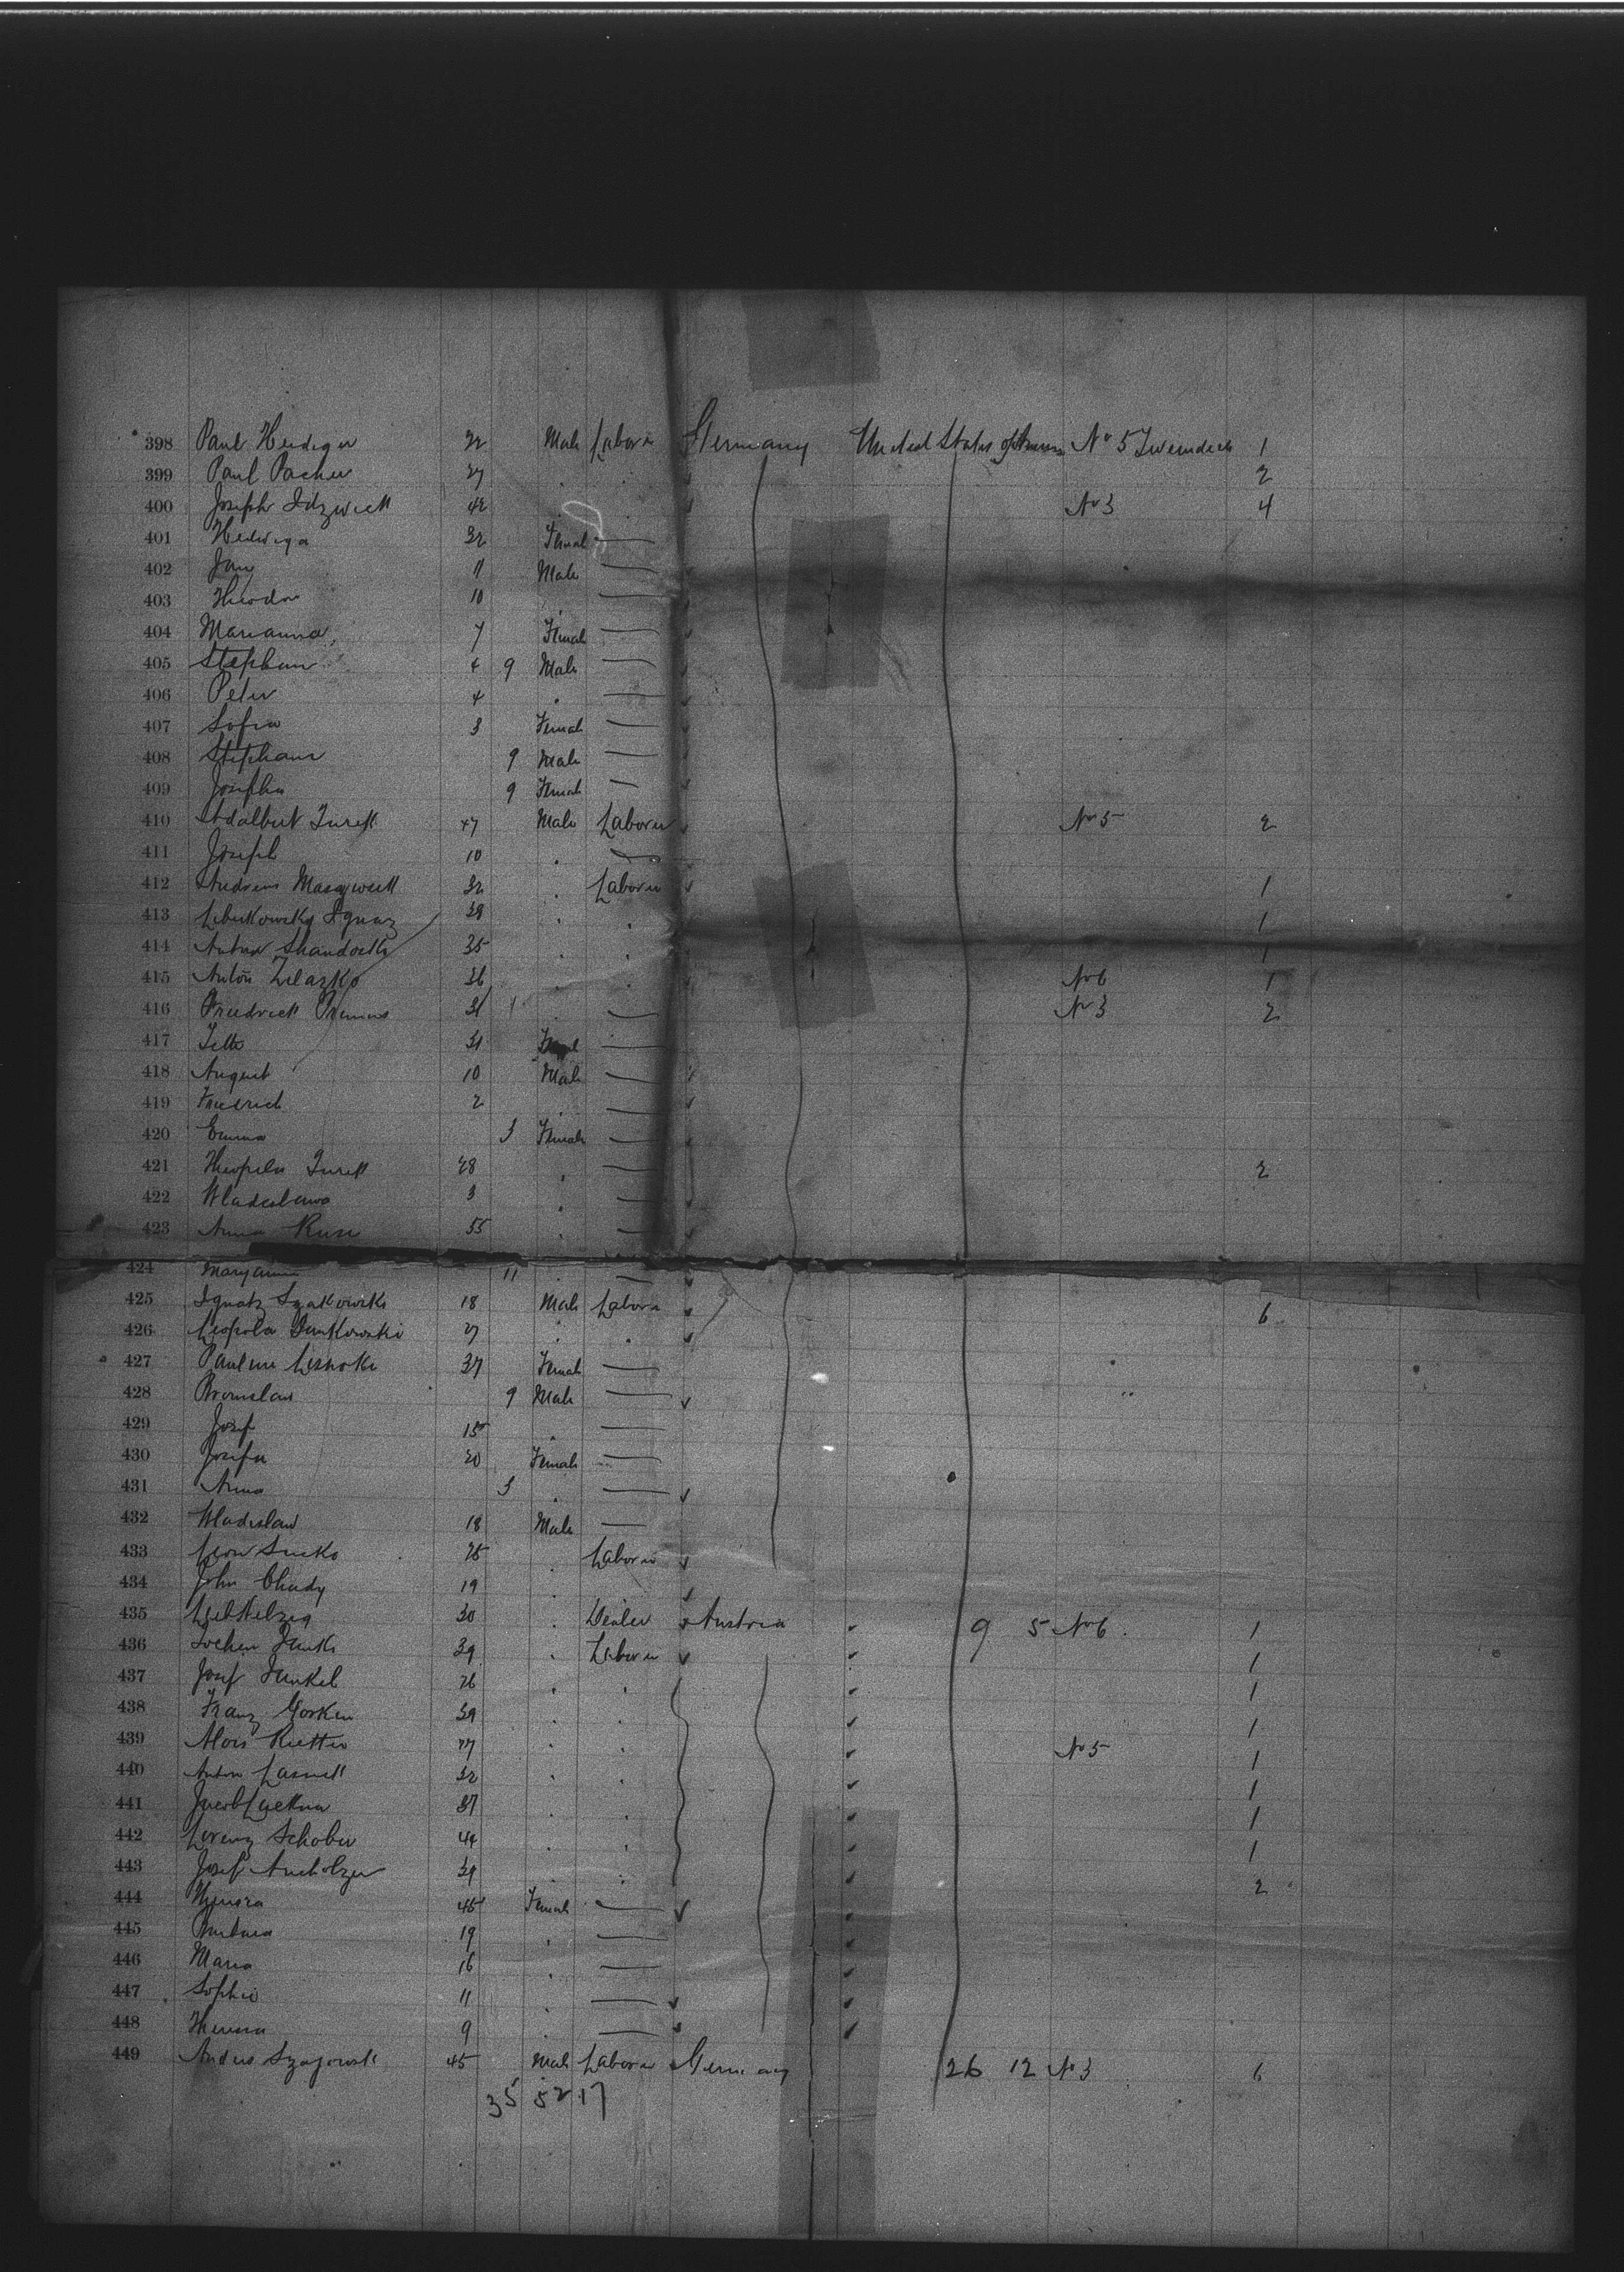 398 Paul Heidiger 22 Male Laborer Germany United States of America No 5 Zweindeck 1
399 Paul Pacher 27 2
400 Joseph Idzwick 42 No 3 4
401 Hedwiga 32 Female
402 Jan 11 Male
403 Theodor 10
404 Marianna 7 Female
405 Stephan 4 9 Male
406 Peter 4
407 Sofia 3 Female
408 Stephan 9 Male
409 Josepha 9 Female
410 Adalbert Turek 47 Male Laborer No 5 2
411 Joseph 10
412 Andreas 32 Laborer 1
413 Ignaz 28 1
414 Anton 35 1
415 Anton Zelazko 36 No 6 1
416 Friedrick 31 No 3 2
417 31 Female
418 August 10 Male
419 Friedrich 2
420 Emma 3 Female
421 Theofila Turek 28 2
422 3
423 Anna Ruse 55
424 Maryanna 11
425 Ignatz 18 Male Laborer 6
426 Leopold 27
427 Pauline 37 Female
428 Bronislaw 9 Male
429 Josef 15
430 Josefa 20 Female
431 Anna 3
432 Wladislaw 18 Male
433 Leon 25 Laborer
434 John Chudy 19
435 30 Dealer Austria 9 5 No 6 1
436 39 Laborer 1
437 Josef Dunkel 26 1
438 Franz 39 1
439 Alois 27 No 5 1
440 Anton 32 1
441 Jacob 37 1
442 Lorenz Schober 44 1
443 Josef 39 2
444 45 Female
445 Barbara 19
446 Maria 16
447 Sophie 11
448 Theresa 9
449 45 Male Laborer Germany 26 12 No 3 6
35 52 17